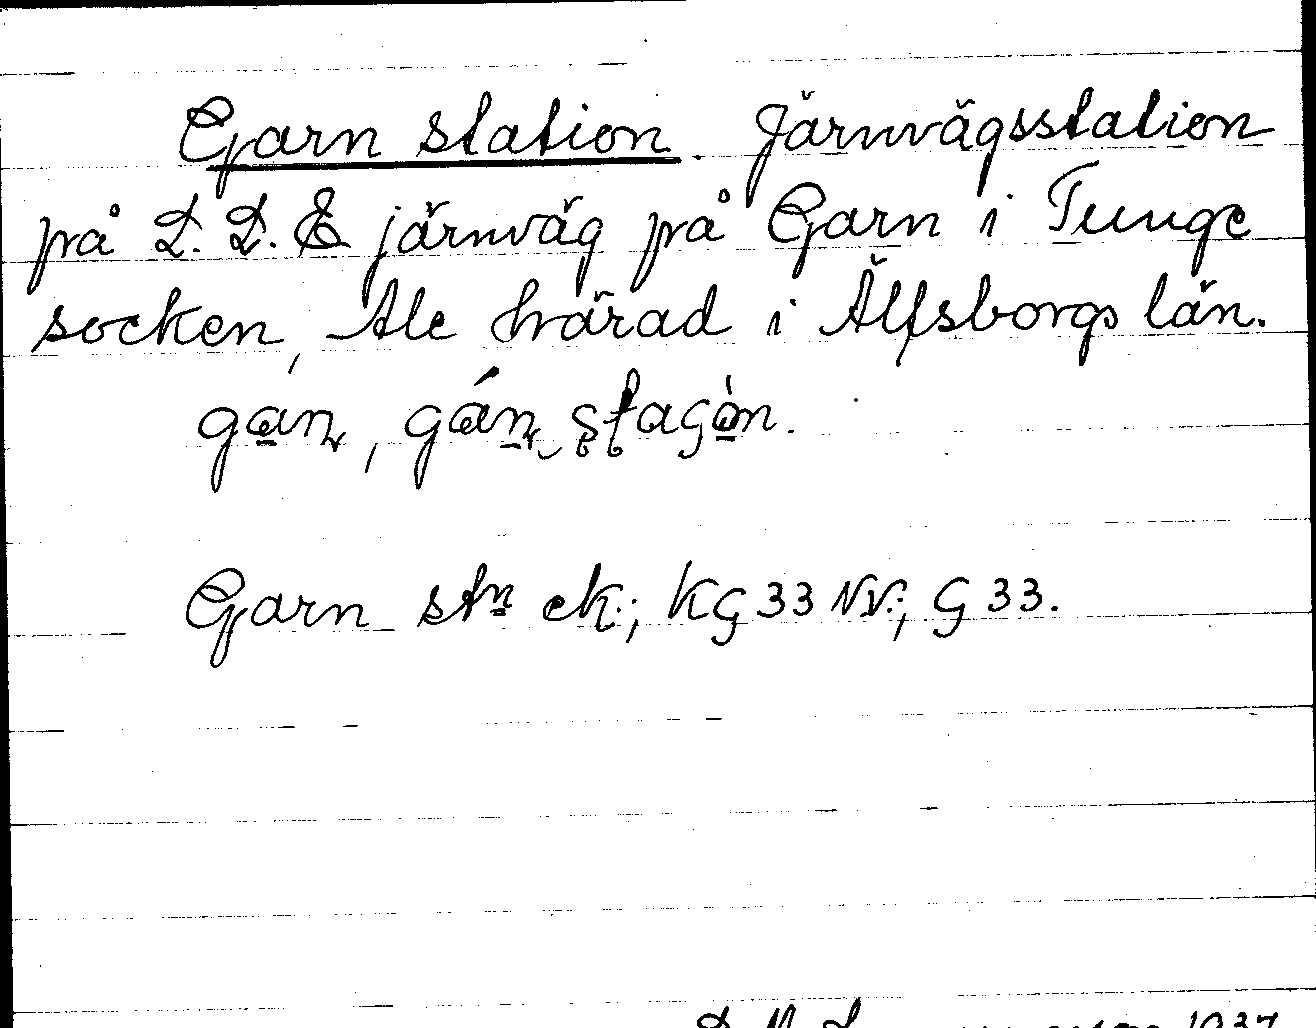 Garn station. Järnvägsstation
på L. L. E järnväg på Garn i Tunge
socken, Ale härad i Älfsborgs län.
Garn stn ek.; KG 33 NV.; G 33.